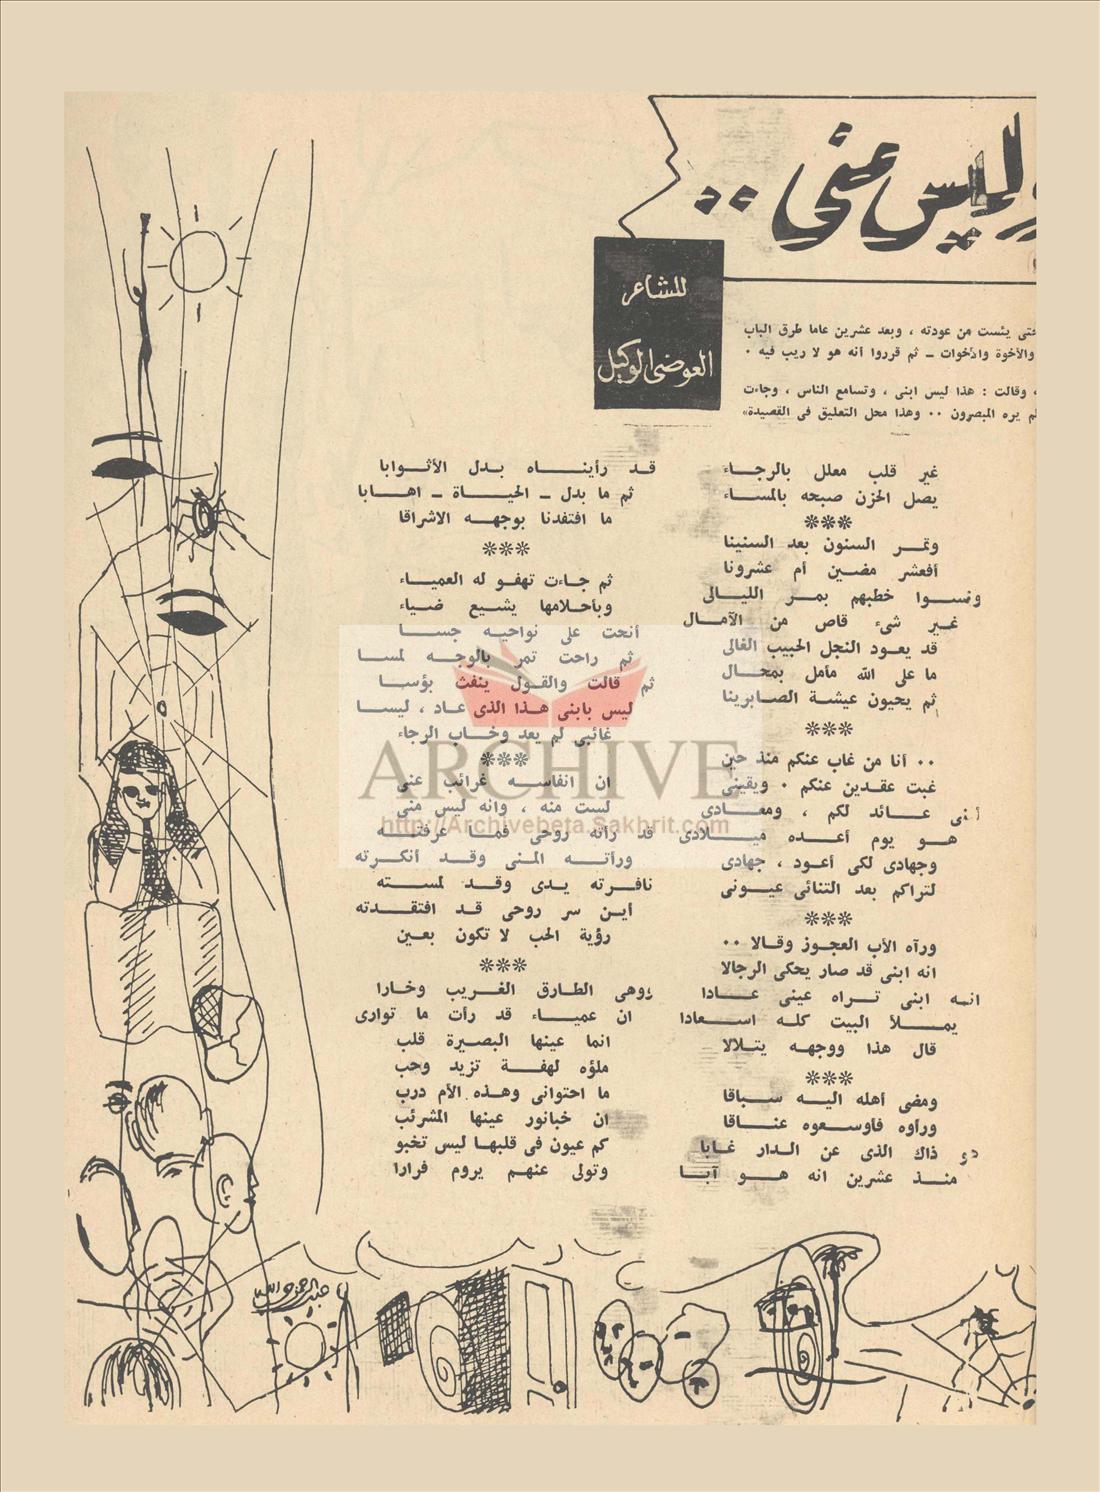 وليس منى ..
للشاعر
العوضى الوكيل
حتى يئست من عودته ، وبعد عشرين عاما طرق الباب
والأخوة والأخوات ــ ثم قرروا أنه هو لا ريب فيه .
وقالت : هذا ليس ابنى ، وتسامع الناس ، وجاءت
لم يره المبصرون .. وهذا محل التعليق فى القصيدة»
غير قلب معلل بالرجاء
يصل الحزن صبحه بالمساء
***
وتمر السنون بعد السنينا
أفعشر مضين أم عشرونا
ونسوا خطبهم بمر الليالى
غير شىء قاص من الآمال
قد يعود النجل الحبيب الغالى
ما على الله مأمل بمحال
ثم يحيون عيشة الصابرينا
***
.. أنا من غاب عنكم منذ حين
غبت عقدين عنكم . ويقينى
أننى عائد لكم ، ومعادى
هو يوم أعده ميلادى
وجهادى لكى أعود ، جهادى
لتراكم بعد التنائى عيونى
***
ورآه الأب العجوز وقالا ..
انه ابنى قد صار يحكى الرجالا
انه ابنى تراه عينى عادا
يملأ البيت كله اسعادا
قال هذا ووجهه يتلالا
***
ومضى أهله اليه سباقا
ورأوه فأوسعوه عناقا
ذاك الذى عن الدار غابا
منذ عشرين انه هو آبا
قد رأيناه بدل الأثوابا
ثم ما بدل ــ الحياة ــ اهابا
ما افتقدنا بوجهه الاشراقا
***
ثم جاءت تهفو له العمياء
وبأحلامها يشيع ضياء
أنحت على نواحيه جسا
ثم راحت تمر بالوجه لمسا
ثم قالت والقول ينفث بؤسا
ليس بابنى هذا الذى عاد ، ليسا
غائبى لم يعد وخاب الرجاء
***
ان انفاسه غرائب عنى
لست منه ، وانه ليس منى
قد رأته روحى فما عرفته
ورأته المنى وقد أنكرته
نافرته يدى وقد لمسته
أين سر روحى قد افتقدته
رؤية الحب لا تكون بعين
***
ووهى الطارق الغريب وخارا
ان عمياء قد رأت ما توارى
انما عينها البصيرة قلب
ملؤه لهفة تزيد وحب
ما احتوانى وهذه الأم درب
ان خبانور عينها المشرئب
كم عيون فى قلبها ليس تخبو
وتولى عنهم يروم فرارا
ARCHIVE
http://Archivebeta.Sakhrit.com